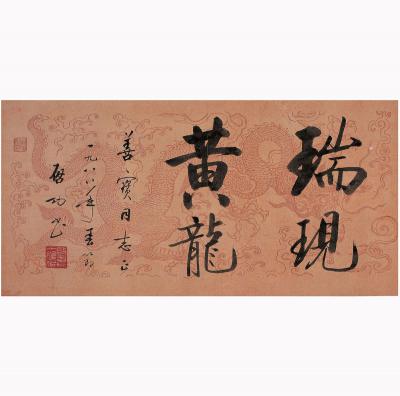 瑞現
黄龍
善寶同志正
一九八八年春節
启功